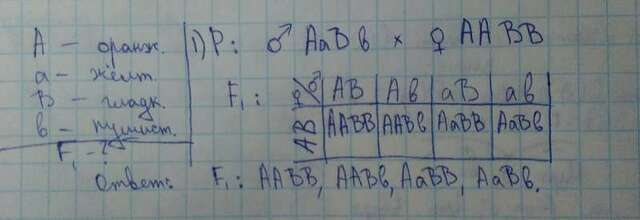 А – оранж.
а – жёлт.
В – гладк.
в – пушист.
F₁ – ?
1) Р: ♂ АаВв × ♀ АА ВВ
F₁: ♀ ♂ АВ Ав аВ ав
АВ ААВВ ААВв АаВВ АаВв
Ответ: F₁: ААВВ, ААВв, АаВВ, АаВв.